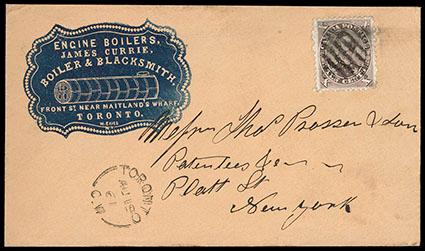 ENGINE BOILERS,
JAMES CURRIE,
BOILER & BLACKSMITH,
FRONT ST. NEAR MAITLAND'S WHARF
TORONTO.
Messrs Thos Prosser & Son
Patentees &c
Platt St
New York
TORONTO
AU
61
C.W.